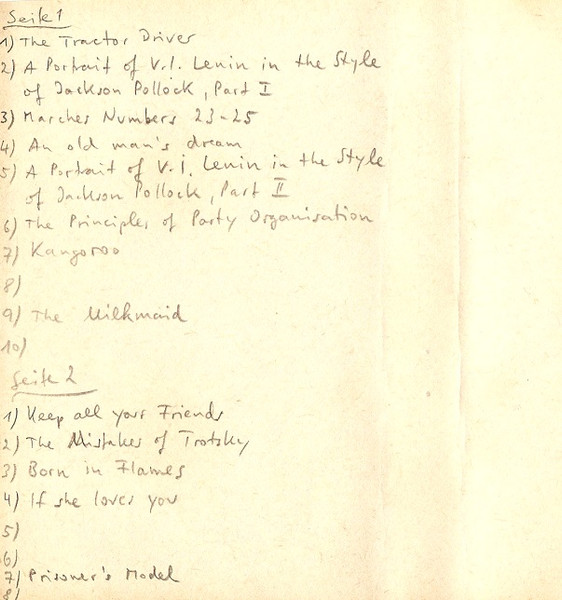 Seite 1
1) The Tractor Driver
2) A Portrait of V.I. Lenin in the Style
of Jackson Pollock, Part I
3) Marches Numbers 23-25
4) An old man's dream
5) A Portrait of V.i. Lenin in the Style
of Jackson Pollock, Part II
6) The Principles of Party Organisation
7) Kangoroo
8)
9) The Milkmaid
10)
Seite 2
1) Keep all your Friends
2) The Mistakes of Trotsky
3) Born in Flames
4) If she loves you
5)
6)
7) Prisoner's Model
8)